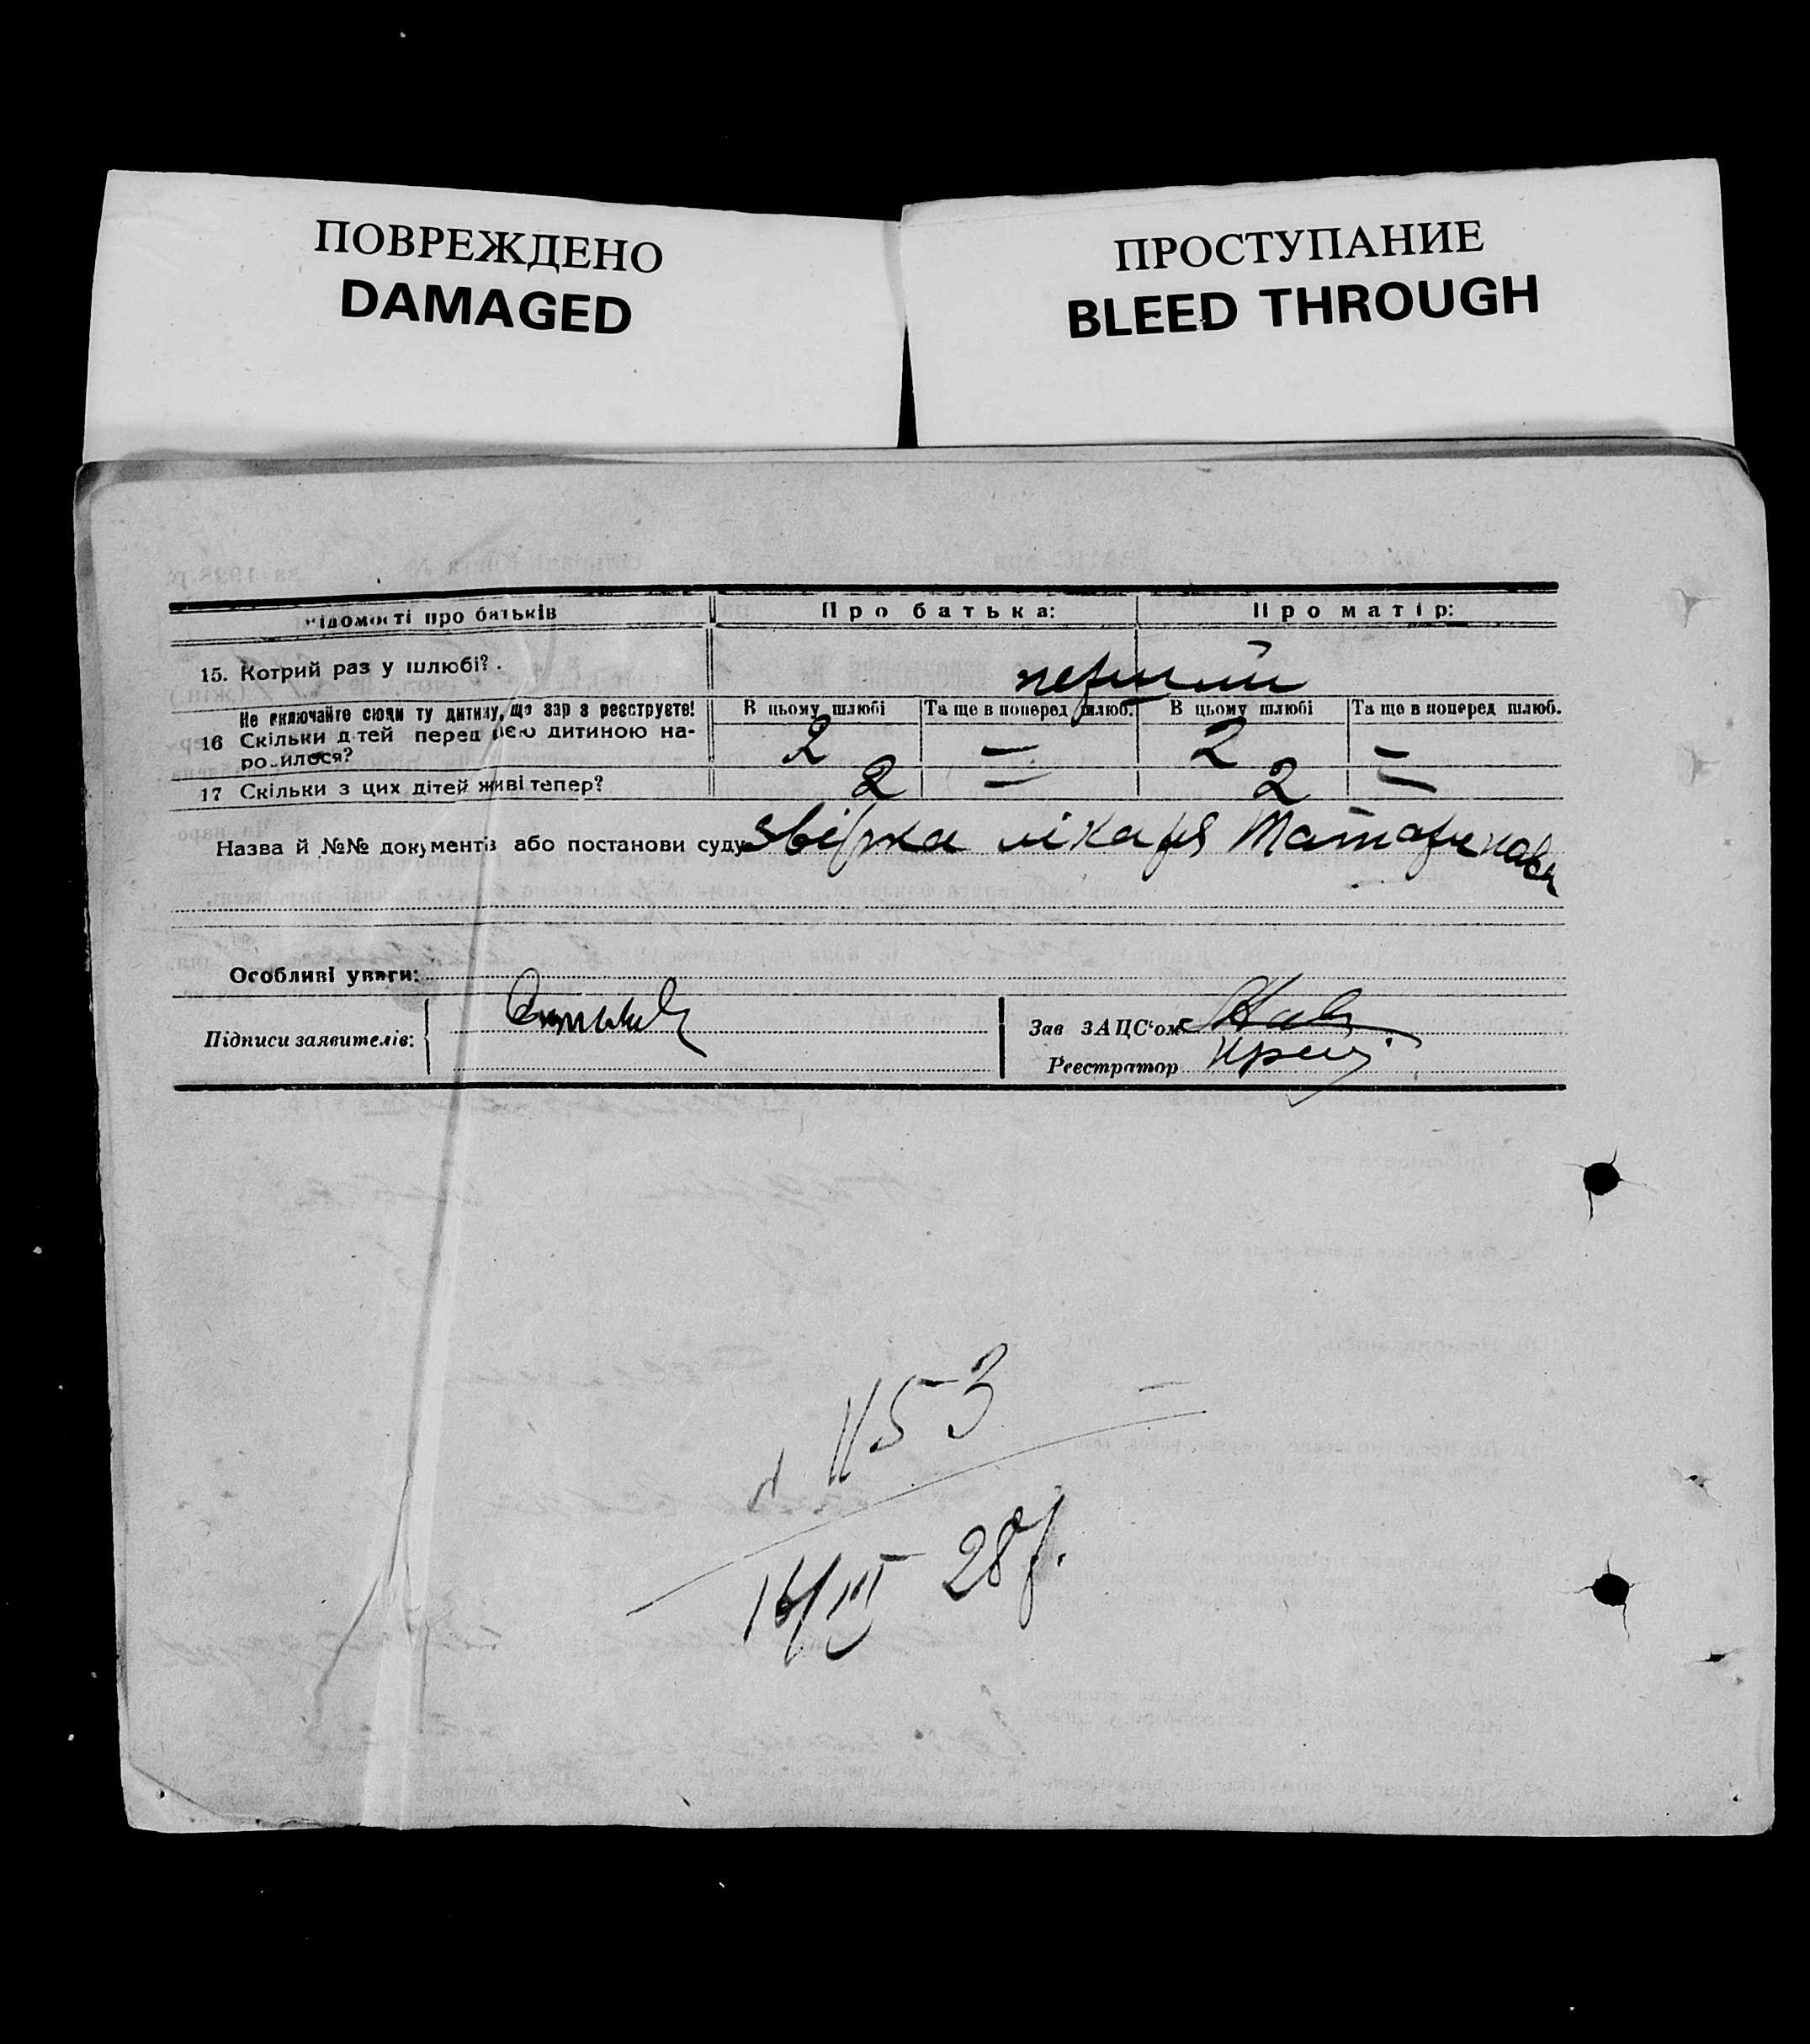 ПОВРЕЖДЕНО
DAMAGED
ПРОСТУПАНИЕ
BLEED THROUGH
відомості про батьків Про батька: Про матір:
15. Котрий раз у шлюбі? . перший
Не включайте сюди ту дитину, що зараз реєструєте! В цьому шлюбі Та ще в поперед шлюб. В цьому шлюбі Та ще в поперед шлюб.
16 Скільки дітей перед цією дитиною на- 2 — 2 —
родилося?
17 Скільки з цих дітей живі тепер? 2 — 2 —
Назва й №№ документів або постанови суду лікаря
Особливі уваги:
Підписи заявителів:
Зав ЗАЦС'ом
Реєстратор
1153
16/III 28 р.